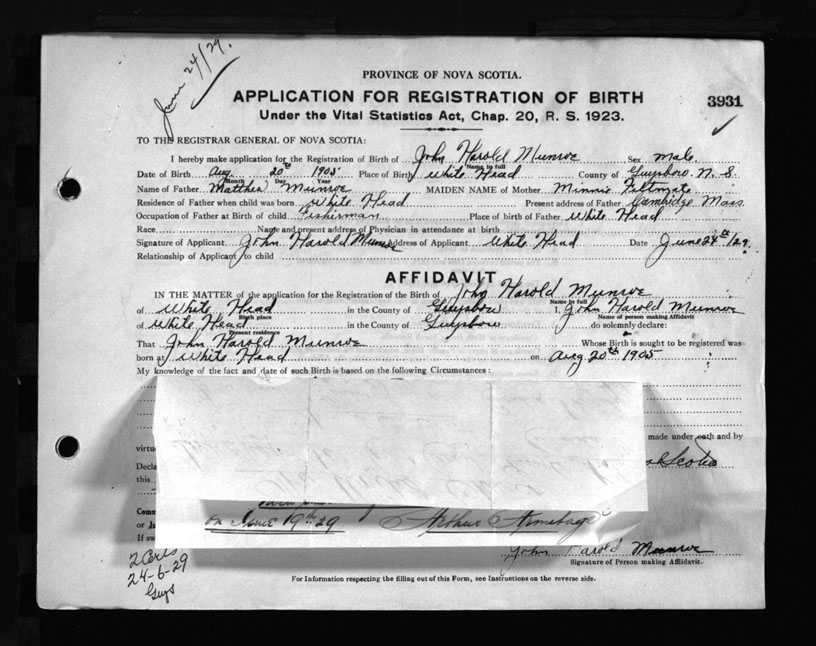 June 24/29.
PROVINCE OF NOVA SCOTIA.
APPLICATION FOR REGISTRATION OF BIRTH
3931
Under the Vital Statistics Act, Chap. 20, R. S. 1923.
TO THE REGISTRAR GENERAL OF NOVA SCOTIA:
I hereby make application for the Registration of Birth of John Harold Munroe Sex Male
Name in full
Date of Birth Aug. 20th 1905 Place of Birth White Head County of Guysboro N. S.
Month Day Year
Name of Father Matthew Munroe MAIDEN NAME of Mother Minnie Feltmate
Residence of Father when child was born White Head Present address of Father Cambridge Mass.
Occupation of Father at Birth of child Fisherman Place of birth of Father White Head
Race Name and present address of Physician in attendance at birth
Signature of Applicant John Harold Munroe Address of Applicant White Head Date June 24th/29.
Relationship of Applicant to child
AFFIDAVIT
IN THE MATTER of the application for the Registration of the Birth of John Harold Munroe
Name in full
of White Head in the County of Guysboro I, John Harold Munroe
Birth place Name of person making Affidavit
of White Head in the County of Guysboro do solemnly declare:
Present residence
That John Harold Munroe Whose Birth is sought to be registered was
born at White Head on Aug 20th 1905
My knowledge of the fact and date of such Birth is based on the following Circumstances:
made under oath and by
virtu
Decla Scotia
this
Com
on June 19th 29 Arthur Armitage
or
If sw
John Harold Munroe
Signature of Person making Affidavit.
2 Certs
24-6-29
Guys
For Information respecting the filling out of this Form, see Instructions on the reverse side.